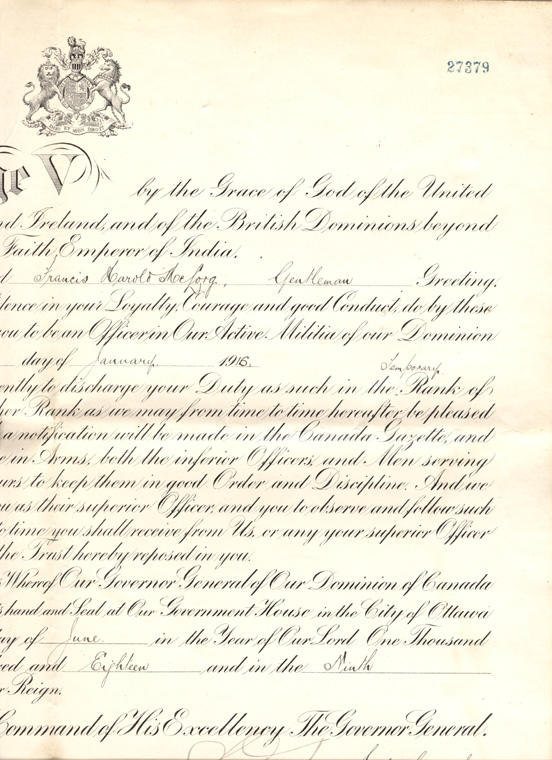 27379
DIEU ET MON DROIT
ge V by the Grace of God of the United
nd Ireland, and of the British Dominions beyond
Faith, Emperor of India.
d Francis Harold McLorg, Gentleman Greeting.
dence in your Loyalty, Courage and good Conduct, do by these
you to be an Officer in Our Active Militia of our Dominion
day of January 1916. Temporary
ently to discharge your Duty as such in the Rank of
her Rank as we may from time to time hereafter be pleased
a notification will be made in the Canada Gazette, and
e in Arms, both the inferior Officers and Men serving
urs to keep them in good Order and Discipline. And we
ou as their superior Officer, and you to observe and follow such
to time you shall receive from Us, or any your superior Officer
the Trust hereby reposed in you.
s Whereof Our Governor General of Our Dominion of Canada
is hand and Seal at Our Government House, in the City of Ottawa
day of June in the Year of Our Lord One Thousand
red and Eighteen and in the Ninth
r Reign.
Command of His Excellency The Governor General.